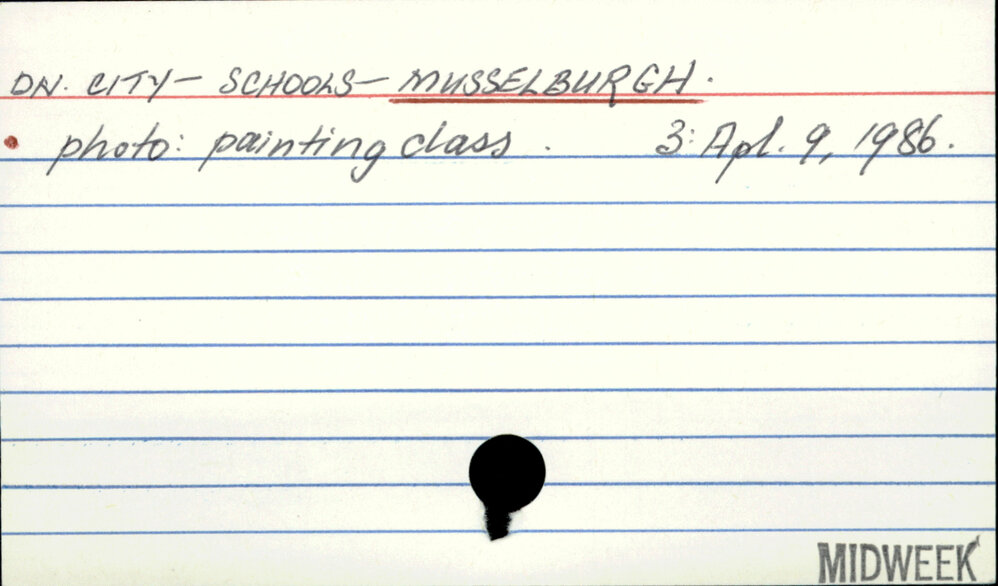 DN. CITY- SCHOOLS- MUSSELBURGH.
photo: painting class. 3: Apl. 9, 1986.
MIDWEEK